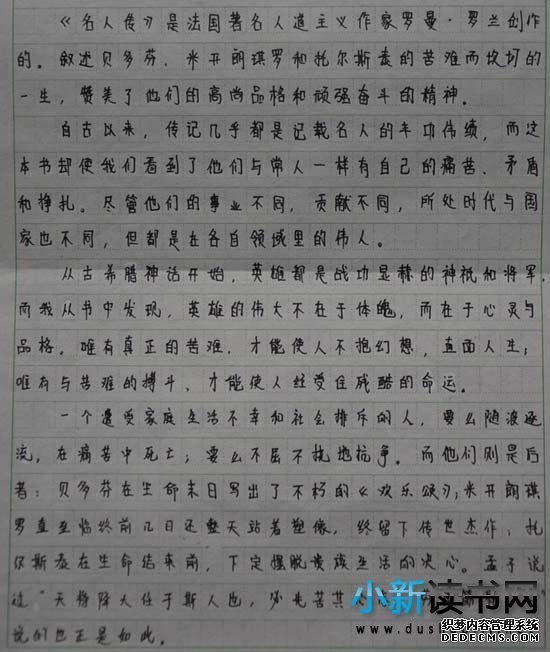 《名人传》是法国著名人道主义作家罗曼·罗兰创作
的。叙述贝多芬、米开朗琪罗和托尔斯泰的苦难而坎坷的
一生，赞美了他们的高尚品格和顽强奋斗的精神。
自古以来，传记几乎都是记载名人的丰功伟绩，而这
本书却使我们看到了他们与常人一样有自己的痛苦、矛盾
和挣扎。尽管他们的事业不同，贡献不同，所处时代与国
家也不同，但都是在各自领域里的伟人。
从古希腊神话开始，英雄都是战功显赫的神祇和将军，
而我从书中发现，英雄的伟大不在于体魄，而在于心灵与
品格。唯有真正的苦难，才能使人不抱幻想，直面人生；
唯有与苦难的搏斗，才能使人经受住残酷的命运。
一个遭受家庭生活不幸和社会排斥的人，要么随波逐
流，在痛苦中死亡；要么不屈不挠地抗争。而他们则是后
者：贝多芬在生命末日写出了不朽的《欢乐颂》；米开朗琪
罗直至临终前几日还整天站着塑像，终留下传世杰作；托
尔斯泰在生命结束前，下定摆脱贵族生活的决心。孟子说
过"天将降大任于斯人也，必先苦其
他们也正是如此。
小新读书网
www.dus
织梦内容管理系统
DEDECMS.COM